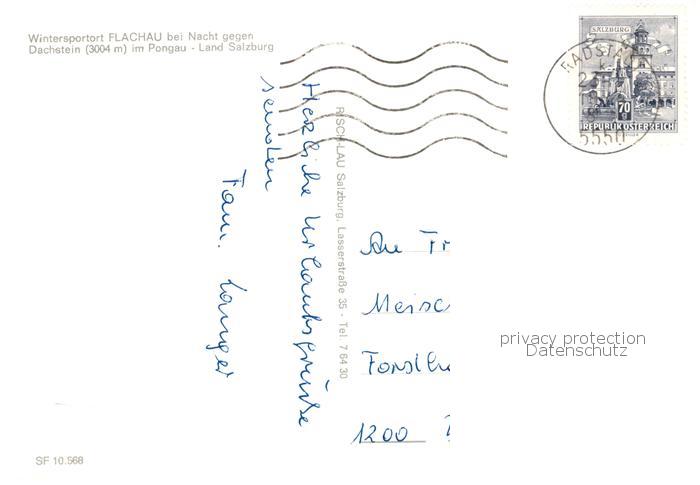 Wintersportort FLACHAU bei Nacht gegen
Dachstein (3004 m) im Pongau - Land Salzburg
SALZBURG
70
REPUBLIK ÖSTERREICH
5550
Herzliche Urlaubsgrüße
senden
Fam.
RISCH-LAU Salzburg, Lasserstraße 35 - Tel. 7 64 30
An Fr
Meisc
1200
privacy protection
Datenschutz
SF 10.568